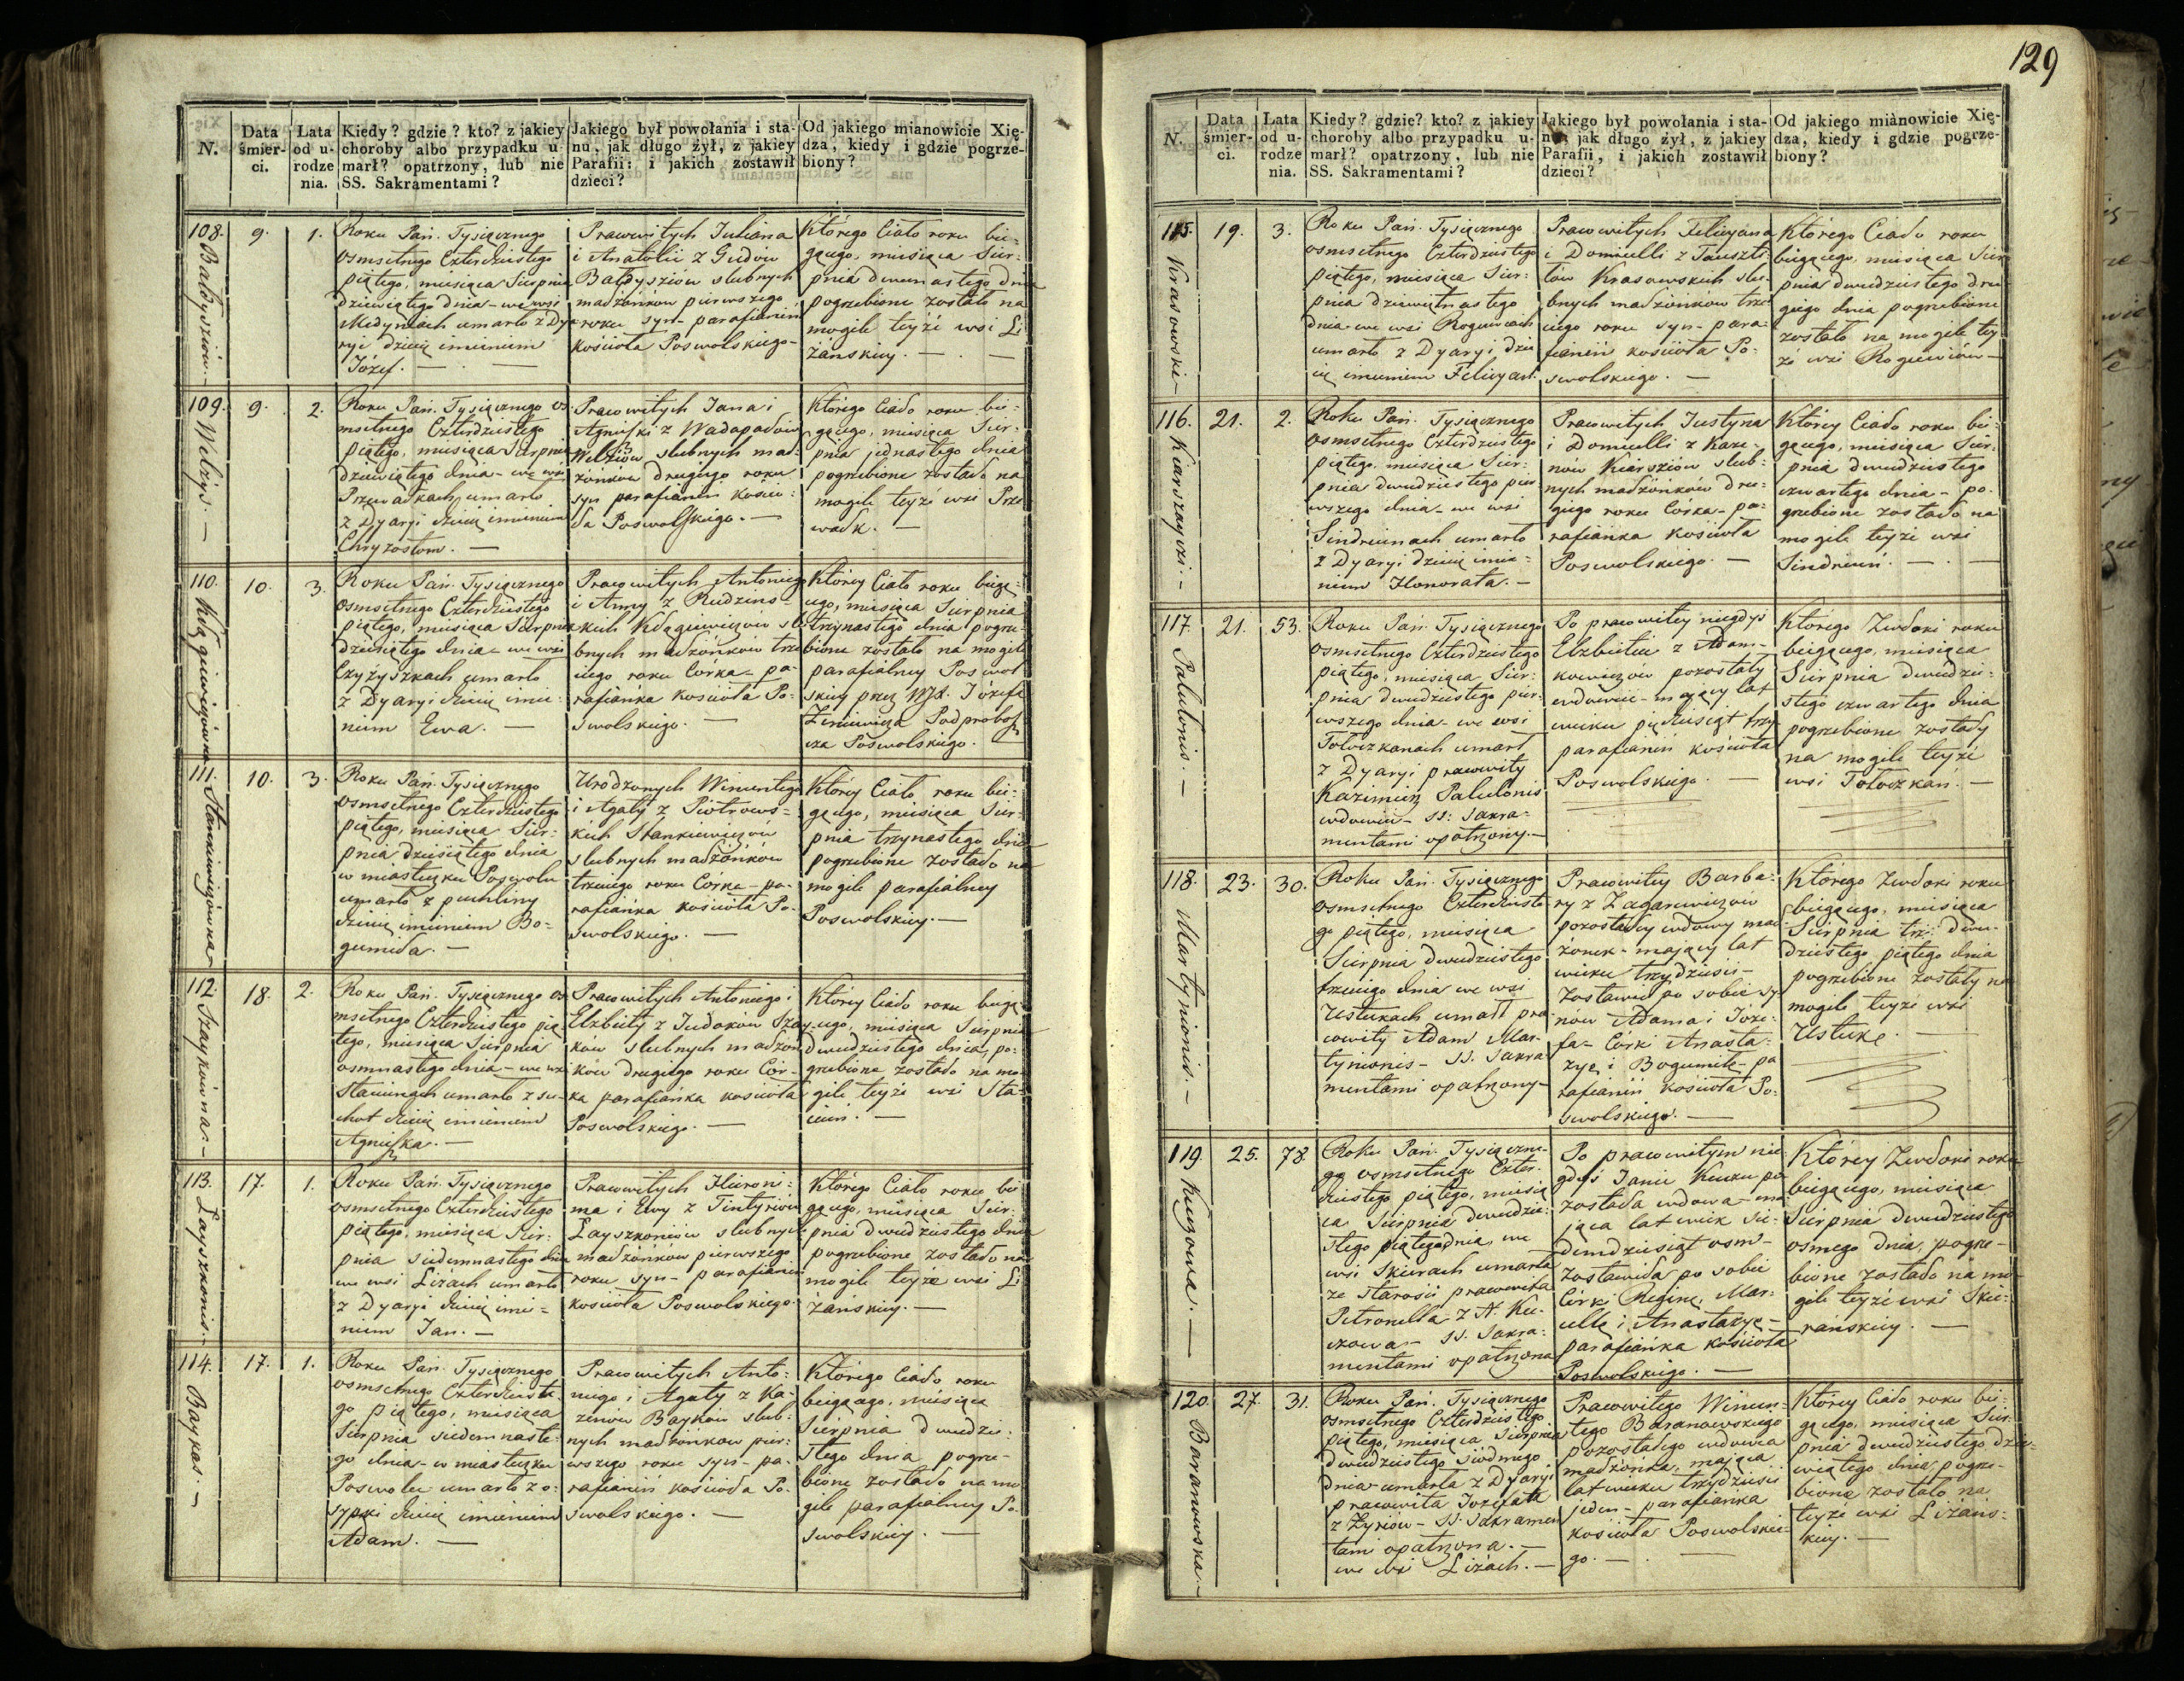 129
N.
Data śmierci.
Lata od urodzenia.
Kiedy? gdzie? kto? z jakiey
choroby albo przypadku u-
marł? opatrzony, lub nie
SS. Sakramentami?
Jakiego był powołania i sta-
nu, jak długo żył, z jakiey
Parafii; i jakich zostawił
dzieci?
Od jakiego mianowicie Xię-
dza, kiedy i gdzie pogrze-
biony?
108.
9.
1.
Roku Pań. Tysiącznego
osmsetnego Czterdziestego
piątego, miesiąca Sierpnia
dziewiątego dnia - we wsi
umarło z Dya-
ryi dziecię imieniem
Józef. —
Pracowitych Juliana
i Anatolii z Gudow
slubnych
małżonkow pierwszego
roku syn - parafianin
kościoła Poswolskiego -
Którego Ciało roku bie-
gącego, miesiąca Sier-
pnia dwunastego dnia
pogrzebione zostało na
mogile teyże wsi Li-
żanskiey. —
109.
9.
2.
Roku Pań. Tysiącznego os-
msetnego Czterdziestego
piątego, miesiąca Sierpnia
dziewiątego dnia - we wsi
umarło
z Dyaryi dziecię imieniem
Chryzostom. —
Pracowitych Jana i
Agnieszki z
slubnych mał-
żonków drugiego roku
syn parafianin kościo-
ła Poswolskiego. —
Którego Ciało roku bie-
gącego, miesiąca Sier-
pnia jednastego dnia
pogrzebione zostało na
mogile teyże wsi Prze-
wałk. —
110.
10.
3.
Roku Pań. Tysiącznego
osmsetnego Czterdziestego
piątego, miesiąca Sierpnia
dziesiątego dnia - we wsi
Czyżyszkach umarło
z Dyaryi dziecię imie-
niem Ewa. —
Pracowitych Antoniego
i Anny z Rudzins-
kich slu-
bnych małżonków trze-
ciego roku Córka - pa-
rafianka kościoła Po-
swolskiego. —
Którey Ciało roku biegą-
cego, miesiąca Sierpnia
trzynastego dnia pogrze-
bione zostało na mogile
parafialney Poswol-
skiey przez WJX. Józefa
Podprobosz-
cza Poswolskiego. —
111. Stankiewiczówna
10.
3.
Roku Pań. Tysiącznego
osmsetnego Czterdziestego
piątego, miesiąca Sier-
pnia dziesiątego dnia
w miasteczku Poswolu
umarło z puchliny
dziecię imieniem Bo-
gumiła. —
Urodzonych Wincentego
i Agaty z Piotrows-
kich Stankiewiczów
slubnych małżonków
trzeciego roku Córka - pa-
rafianka kościoła Po-
swolskiego. —
Którey Ciało roku bie-
gącego, miesiąca Sier-
pnia trzynastego dnia
pogrzebione zostało na
mogile parafialney
Poswolskiey. —
112. Szaykówna. —
18.
2.
Roku Pań. Tysiącznego os-
msetnego Czterdziestego pią-
tego, miesiąca Sierpnia
osmnastego dnia - we wsi
Staciunach umarło z su-
chot dziecię imieniem
Agnieszka. —
Pracowitych Antoniego i
Elżbiety z Szay-
ków slubnych małżon-
ków drugiego roku Cór-
ka parafianka kościoła
Poswolskiego. —
Którey Ciało roku biegą-
cego, miesiąca Sierpnia
dwudziestego dnia, po-
grzebione zostało na mo-
gile teyże wsi Sta-
ciun. —
113. Layszkonis. —
17.
1.
Roku Pań. Tysiącznego
osmsetnego Czterdziestego
piątego, miesiąca Sier-
pnia siedmnastego dnia
we wsi Liżach umarło
z Dyaryi dziecię imie-
niem Jan. —
Pracowitych Hieroni-
ma i Ewy z
Layszkonisów slubnych
małżonków pierwszego
roku syn - parafianin
kościoła Poswolskiego.
Którego Ciało roku bie-
gącego, miesiąca Sier-
pnia dwudziestego dnia
pogrzebione zostało na
mogile teyże wsi Li-
żańskiey. —
114. Baykas. —
17.
1.
Roku Pań. Tysiącznego
osmsetnego Czterdzieste-
go piątego, miesiąca
Sierpnia siedemnaste-
go dnia - w miasteczku
Poswolu umarło z o-
sypki dziecię imieniem
Adam. —
Pracowitych Anto-
niego i Agaty z Ka-
zenów Bayków slub-
nych małżonkow pier-
wszego roku syn - pa-
rafianin kościoła Po-
swolskiego. —
Którego Ciało roku
biegącego, miesiąca
Sierpnia dwudzie-
stego dnia pogrze-
bione zostało na mo-
gile parafialney Po-
swolskiey. —
N.
Data śmierci.
Lata od urodzenia.
Kiedy? gdzie? kto? z jakiey
choroby albo przypadku u-
marł? opatrzony, lub nie
SS. Sakramentami?
Jakiego był powołania i sta-
nu, jak długo żył, z jakiey
Parafii, i jakich zostawił
dzieci?
Od jakiego mianowicie Xię-
dza, kiedy i gdzie pogrze-
biony?
115. Krasowski —
19.
3.
Roku Pań. Tysiącznego
osmsetnego Czterdziestego
piątego, miesiąca Sier-
pnia dziewiętnastego
dnia we wsi Rogiewcach
umarło z Dyaryi dzie-
cię imieniem Felicyan.
Pracowitych Felicyana
i Domicelli z
Krasowskich slu-
bnych małżonkow trze-
ciego roku syn - para-
fianin kościoła Po-
swolskiego. —
Którego Ciało roku
biegącego, miesiąca Sier-
pnia dwudziestego dru-
giego dnia pogrzebione
zostało na mogile tey-
że wsi Rogiewców —
116.
21.
2.
Roku Pań. Tysiącznego
osmsetnego Czterdziestego
piątego, miesiąca Sier-
pnia dwudziestego pier-
wszego dnia - we wsi
Sindriunach umarło
z Dyaryi dziecię imie-
niem Honorata. —
Pracowitych Justyna
i Domicelli z Kaze-
nów Kiarsziów slub-
nych małżonków dru-
giego roku Córka - pa-
rafianka kościoła
Poswolskiego. —
Którey Ciało roku bie-
gącego, miesiąca Sier-
pnia dwudziestego
czwartego dnia - po-
grzebione zostało na
mogile teyże wsi
Sindriun. —
117. Palulonis. —
21.
53.
Roku Pań. Tysiącznego
osmsetnego Czterdziestego
piątego, miesiąca Sier-
pnia dwudziestego pier-
wszego dnia - we wsi
Tołoczkanach umarł
z Dyaryi pracowity
Kazimierz Palulonis
wdowiec - SS. Sakra-
mentami opatrzony. —
Po pracowitey niegdyś
Elżbiecie z Adam-
kowiczów pozostały
wdowiec - mający lat
wieku pięćdziesiąt trzy
parafianin kościoła
Poswolskiego. —
Którego Zwłoki roku
biegącego, miesiąca
Sierpnia dwudzie-
stego czwartego dnia
pogrzebione zostały
na mogile teyże
wsi Tołoczkań. —
118. Martynionis. —
23.
30.
Roku Pań. Tysiącznego
osmsetnego Czterdzieste-
go piątego, miesiąca
Sierpnia dwudziestego
trzeciego dnia we wsi
Ustukach umarł pra-
cowity Adam Mar-
tynionis - SS. Sakra-
mentami opatrzony —
Pracowitey Barba-
ry z Zagarewiczów
pozostałey wdowy mał-
żonek - mający lat
wieku trzydzieści -
zostawił po sobie sy-
nów Adama i Józe-
fa - Córki Anasta-
zyę i Bogumiłę - pa-
rafianin kościoła Po-
swolskiego. —
Którego Zwłoki roku
biegącego, miesiąca
Sierpnia dwu-
dziestego piątego dnia
pogrzebione zostały na
mogile teyże wsi
Ustuk. —
119. Kuczowa. —
25.
78.
Roku Pań. Tysiączne-
go osmsetnego Czter-
dziestego piątego, miesią-
ca Sierpnia dwudzie-
stego piątego dnia, we
wsi Skierach umarła
ze starości pracowita
Petronella z N. Ku-
czowa - SS. Sakra-
mentami opatrzona
Po pracowitym nie-
gdyś Janie Kuczu po-
została wdowa - ma-
jąca lat wiek sie-
demdziesiąt osm -
zostawiła po sobie
Córki Reginę, Mar-
cellę i Anastazyę -
parafianka kościoła
Poswolskiego. —
Którey Zwłoki roku
biegącego, miesiąca
Sierpnia dwudziestego
osmego dnia, pogrze-
bione zostało na mo-
gile teyże wsi Skie-
rańskiey. —
120. Baranowska. —
27.
31.
Roku Pań. Tysiącznego
osmsetnego Czterdziestego
piątego, miesiąca Sierpnia
dwudziestego siódmego
dnia umarła z Dyaryi
pracowita Jozefata
z - SS. Sakramen-
tami opatrzona. —
we wsi Liżach. —
Pracowitego Wincen-
tego Baranowskiego
pozostałego wdowca
małżonka, mająca
lat wieku trzydzieści
jeden - parafianka
kościoła Poswolskie-
go. —
Którey Ciało roku bie-
gącego, miesiąca Sier-
pnia dwudziestego dzie-
wiątego dnia pogrze-
bione zostało na
teyże wsi Liżans-
kiey. —